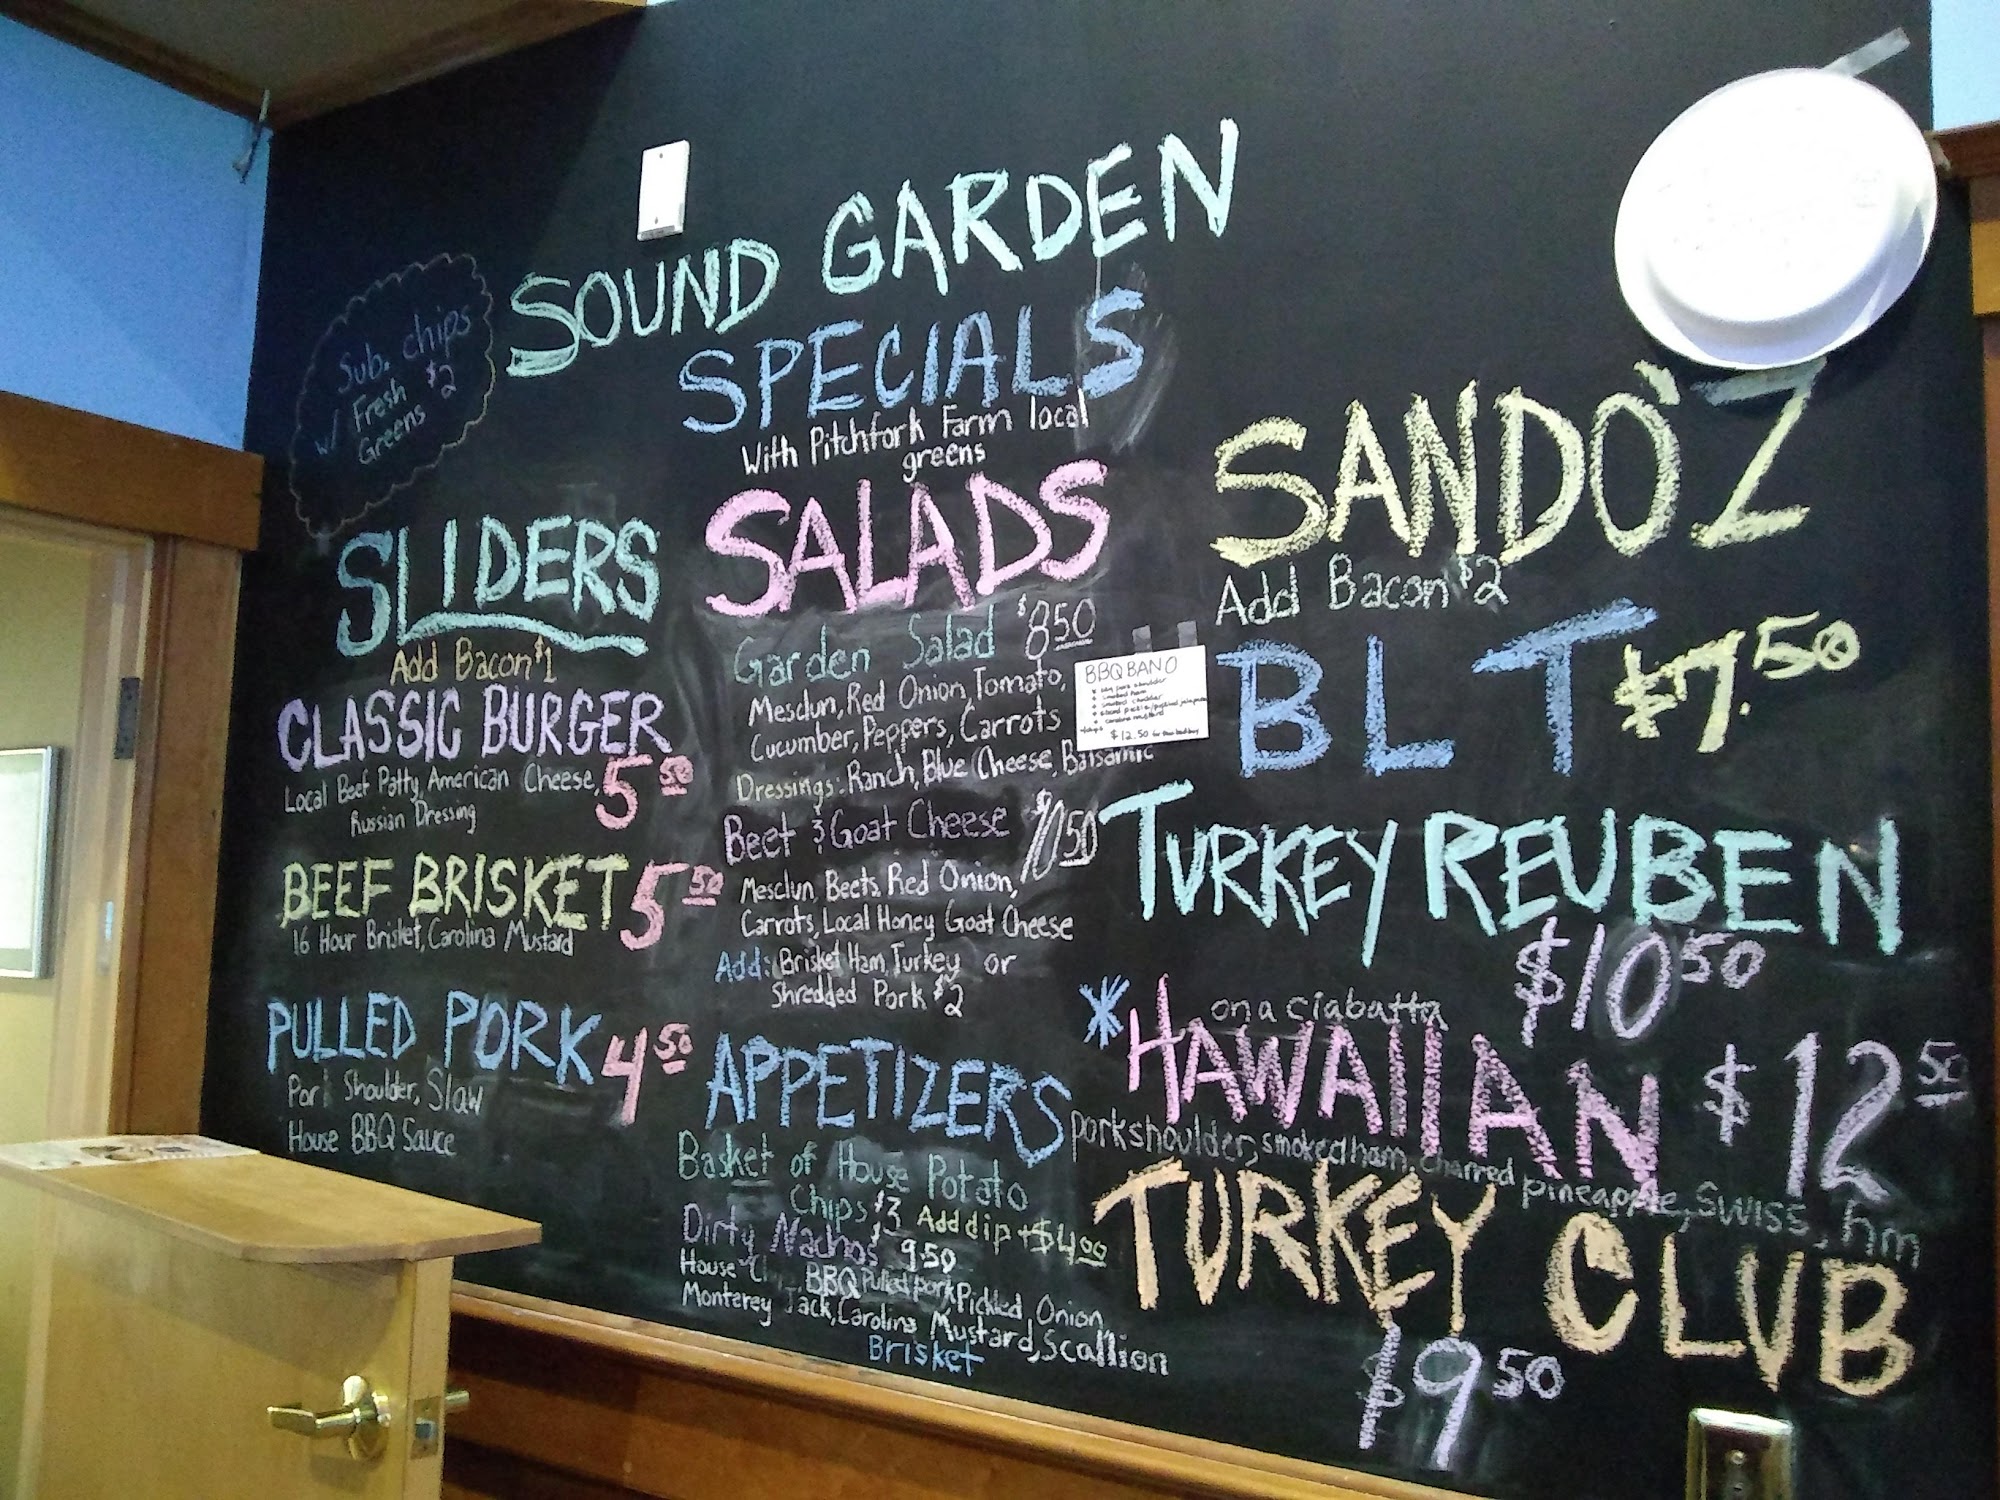 SOUND GARDEN
SPECIALS
With Pitchfork Farm local
greens
Sub. chips
w/ Fresh $2
Greens
SLIDERS
Add Bacon $1
CLASSIC BURGER
Local Beef Patty, American Cheese, 5 50
Russian Dressing
BEEF BRISKET 5 50
16 Hour Brisket, Carolina Mustard
PULLED PORK 4 50
Por Shoulder, Slaw
House BBQ Sauce
SALADS
Garden Salad $8 50
Mesclun, Red Onion, Tomato,
Cucumber, Peppers, Carrots
Dressings: Ranch, Blue Cheese, Balsamic
Beet & Goat Cheese $10 50
Mesclun, Beets, Red Onion,
Carrots, Local Honey Goat Cheese
Add: Brisket Ham, Turkey or
Shredded Pork $2
APPETIZERS
Basket of House Potato
Chips $3 Add dip +$4 00
Dirty Nachos $9.50
House BBQ Pulled pork Pickled Onion,
Monterey Jack, Carolina Mustard, Scallion
Brisket
BBQ BANO
BBQ pork shoulder
smoked ham
smoked cheddar
carolina mustard
$12.50
SANDO'Z
Add Bacon $2
BLT $7.50
TURKEY REUBEN
$10 50
on a ciabatta
*HAWAIIAN $12 50
pork shoulder, smoked ham, charred pineapple, swiss, hm
TURKEY CLUB
$9 50